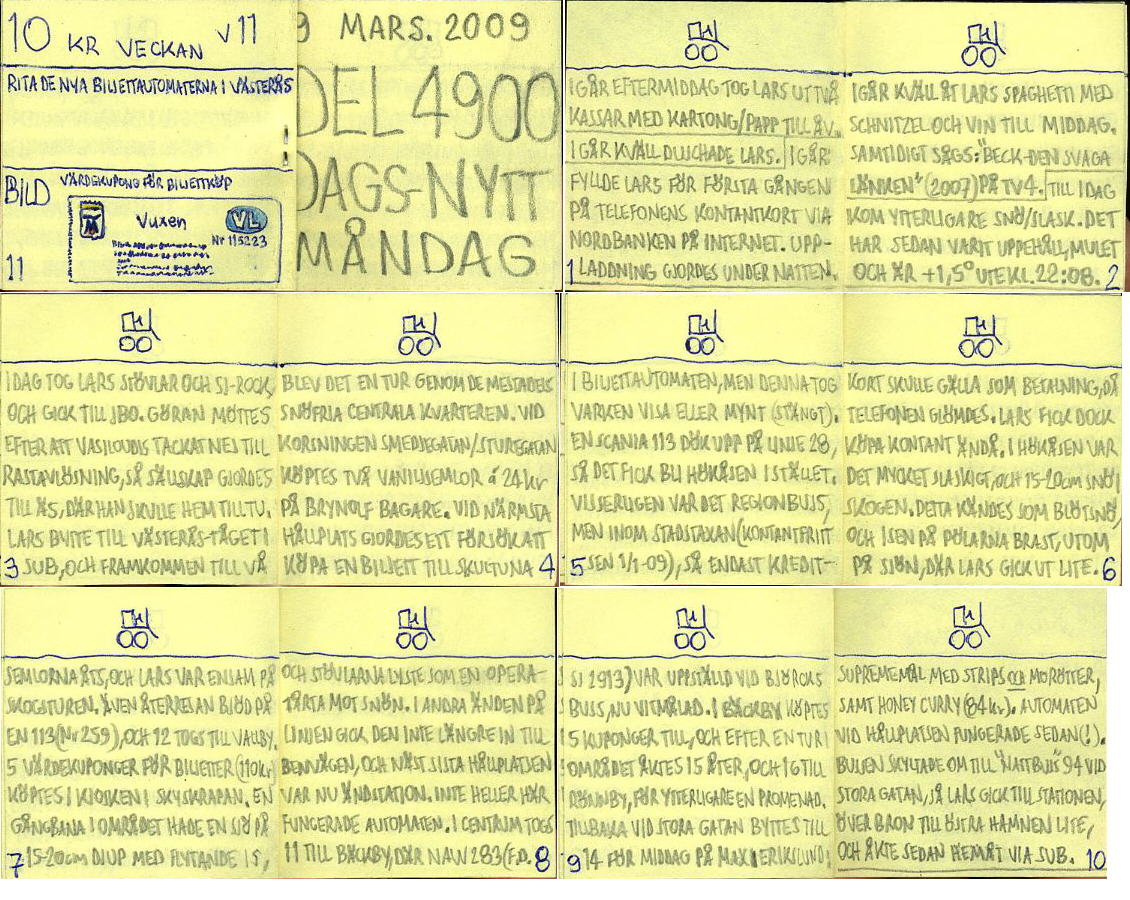 10 KR VECKAN V11
RITA DE NYA BILJETTAUTOMATERNA I VÄSTERÅS
BILD
11
VÄRDEKUPONG FÖR BILJETTKÖP
Vuxen
VL
Nr 115223
9 MARS. 2009
DEL 4900
DAGS-NYTT
MÅNDAG
IGÅR EFTERMIDDAG TOG LARS UT TVÅ
KASSAR MED KARTONG/PAPP TILL ÅV.
IGÅR KVÄLL DUSCHADE LARS. IGÅR
FYLLDE LARS FÖR FÖRSTA GÅNGEN
PÅ TELEFONENS KONTANTKORT VIA
NORDBANKEN PÅ INTERNET. UPP-
LADDNING GJORDES UNDER NATTEN.
1
IGÅR KVÄLL ÅT LARS SPAGHETTI MED
SCHNITZEL OCH VIN TILL MIDDAG.
SAMTIDIGT SÅGS: "BECK-DEN SVAGA
LÄNKEN" (2007) PÅ TV4. TILL IDAG
KOM YTTERLIGARE SNÖ/SLASK. DET
HAR SEDAN VARIT UPPEHÅLL, MULET
OCH ÄR +1,5° UTE KL. 22:08.
2
IDAG TOG LARS STÖVLAR OCH SJ-ROCK,
OCH GICK TILL JBO. GÖRAN MÖTTES
EFTER ATT VASILOUDIS TACKAT NEJ TILL
RASTAVLÖSNING, SÅ SÄLLSKAP GJORDES
TILL ÄS, DÄR HAN SKULLE HEM TILL TU.
LARS BYTTE TILL VÄSTERÅS-TÅGET I
SUB, OCH FRAMKOMMEN TILL VÅ
3
BLEV DET EN TUR GENOM DE MESTADELS
SNÖFRIA CENTRALA KVARTEREN. VID
KORSNINGEN SMEDJEGATAN/STUREGATAN
KÖPTES TVÅ VANILJSEMLOR á 24 kr
PÅ BRYNOLF BAGARE. VID NÄRMSTA
HÅLLPLATS GJORDES ETT FÖRSÖK ATT
KÖPA EN BILJETT TILL SKULTUNA
4
I BILJETTAUTOMATEN, MEN DENNA TOG
VARKEN VISA ELLER MYNT (STÄNGT).
EN SCANIA 113 DÖK UPP PÅ LINJE 28,
SÅ DET FICK BLI HÖKÅSEN ISTÄLLET.
VISSERLIGEN VAR DET REGIONBUSS,
MEN INOM STADSTAXAN (KONTANTFRITT
SEN 1/1-09), SÅ ENDAST KREDIT-
5
KORT SKULLE GÄLLA SOM BETALNING, DÅ
TELEFONEN GLÖMDES. LARS FICK DOCK
KÖPA KONTANT ÄNDÅ. I HÖKÅSEN VAR
DET MYCKET SLASKIGT, OCH 15-20cm SNÖ I
SKOGEN. DETTA KÄNDES SOM BLÖTSNÖ,
OCH ISEN PÅ PÖLARNA BRAST, UTOM
PÅ SJÖN, DÄR LARS GICK UT LITE.
6
SEMLORNA ÅTS, OCH LARS VAR ENSAM PÅ
SKOGSTUREN. ÄVEN ÅTERRESAN BJÖD PÅ
EN 113 (Nr 259), OCH 12 TOGS TILL VALLBY.
5 VÄRDEKUPONGER FÖR BILJETTER (110kr)
KÖPTES I KIOSKEN I SKYSKRAPAN. EN
GÅNGBANA I OMRÅDET HADE EN SJÖ PÅ
15-20cm DJUP MED FLYTANDE IS,
7
OCH STÖVLARNA LYSTE SOM EN OPERA-
TÅRTA MOT SNÖN. I ANDRA ÄNDEN PÅ
LINJEN GICK DEN INTE LÄNGRE IN TILL
BENVÄGEN, OCH NÄST SISTA HÅLLPLATSEN
VAR NU ÄNDSTATION. INTE HELLER HÄR
FUNGERADE AUTOMATEN. I CENTRUM TOGS
11 TILL BÄCKBY, DÄR NAW 283 (F.D.
8
SJ 2913) VAR UPPSTÄLLD VID BJÖRCKS
BUSS, NU VITMÅLAD. I BÄCKBY KÖPTES
5 KUPONGER TILL, OCH EFTER EN TUR I
OMRÅDET ÅKTES 15 ÅTER, OCH 16 TILL
RÖNNBY, FÖR YTTERLIGARE EN PROMENAD.
TILLBAKA VID STORA GATAN BYTTES TILL
14 FÖR MIDDAG PÅ MAX I ERIKSLUND:
9
SUPREMEMÅL MED STRIPS OCH MORÖTTER,
SAMT HONEY CURRY (84kr). AUTOMATEN
VID HÅLLPLATSEN FUNGERADE SEDAN (!).
BUSSEN SKYLTADE OM TILL "NATTBUSS" 94 VID
STORA GATAN, SÅ LARS GICK TILL STATIONEN,
ÖVER BRON TILL ÖSTRA HAMNEN LITE,
OCH ÅKTE SEDAN HEMÅT VIA SUB.
10